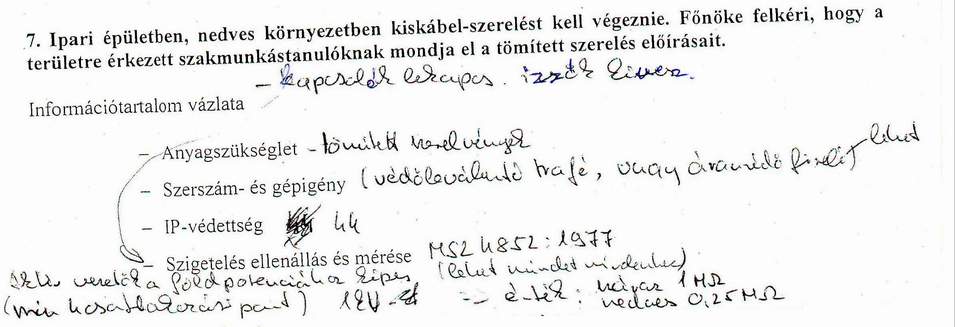 7. Ipari épületben, nedves környezetben kiskábel-szerelést kell végeznie. Főnöke felkéri, hogy a
területre érkezett szakmunkástanulóknak mondja el a tömített szerelés előírásait.
- kapcsolók lekapcs. izzók kivesz.
Információtartalom vázlata
- Anyagszükséglet - tömített szerelvények
- Szerszám- és gépigény (védőleválasztó trafó, vagy áramvédő fi relé lehet
- IP-védettség 44
- Szigetelés ellenállás és mérése MSZ 4852:1977
vezetők a földpotenciálhoz képes (lehet mindet mindenhez)
(min csatlakozási pont) => érték: száraz 1 MΩ
nedves 0,25 MΩ